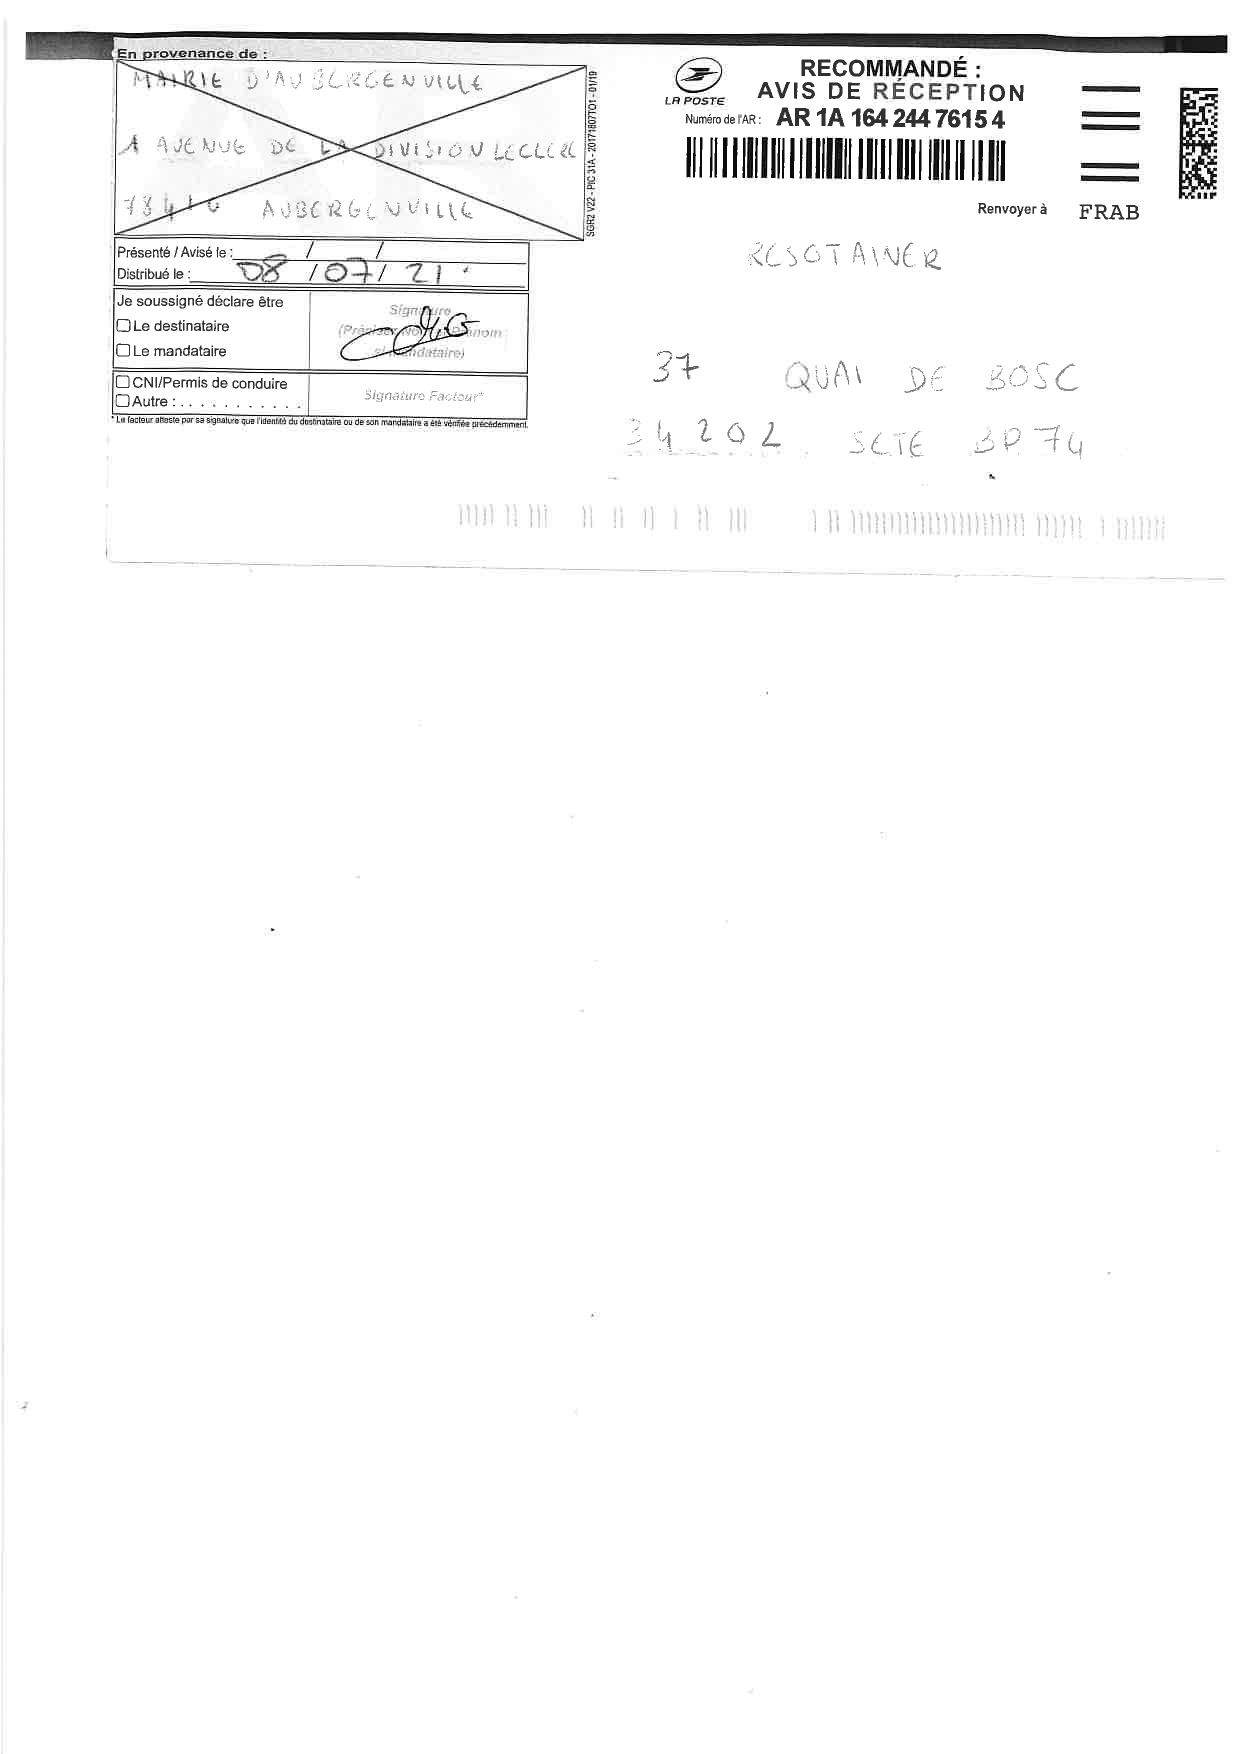 En provenance de :
MAIRIE D'AUBERGENVILLE
1 AVENUE DE LA DIVISION LECLERC
78410 AUBERGENVILLE
SGR2 V22 - PIC 31A - 20171807TO1 - 01/19
Présenté / Avisé le : / /
Distribué le : 08 / 07 / 21
Je soussigné déclare être
Le destinataire
Le mandataire
Signature
(Préciser Nom et Prénom
si mandataire)
CNI/Permis de conduire
Autre : . . . . . . . . . . .
Signature Facteur*
* Le facteur atteste par sa signature que l'identité du destinataire ou de son mandataire a été vérifiée précédemment.
LA POSTE
RECOMMANDÉ :
AVIS DE RÉCEPTION
Numéro de l'AR : AR 1A 164 244 7615 4
Renvoyer à FRAB
RESOTAINER
37 QUAI DE BOSC
34202 SETE BP 74